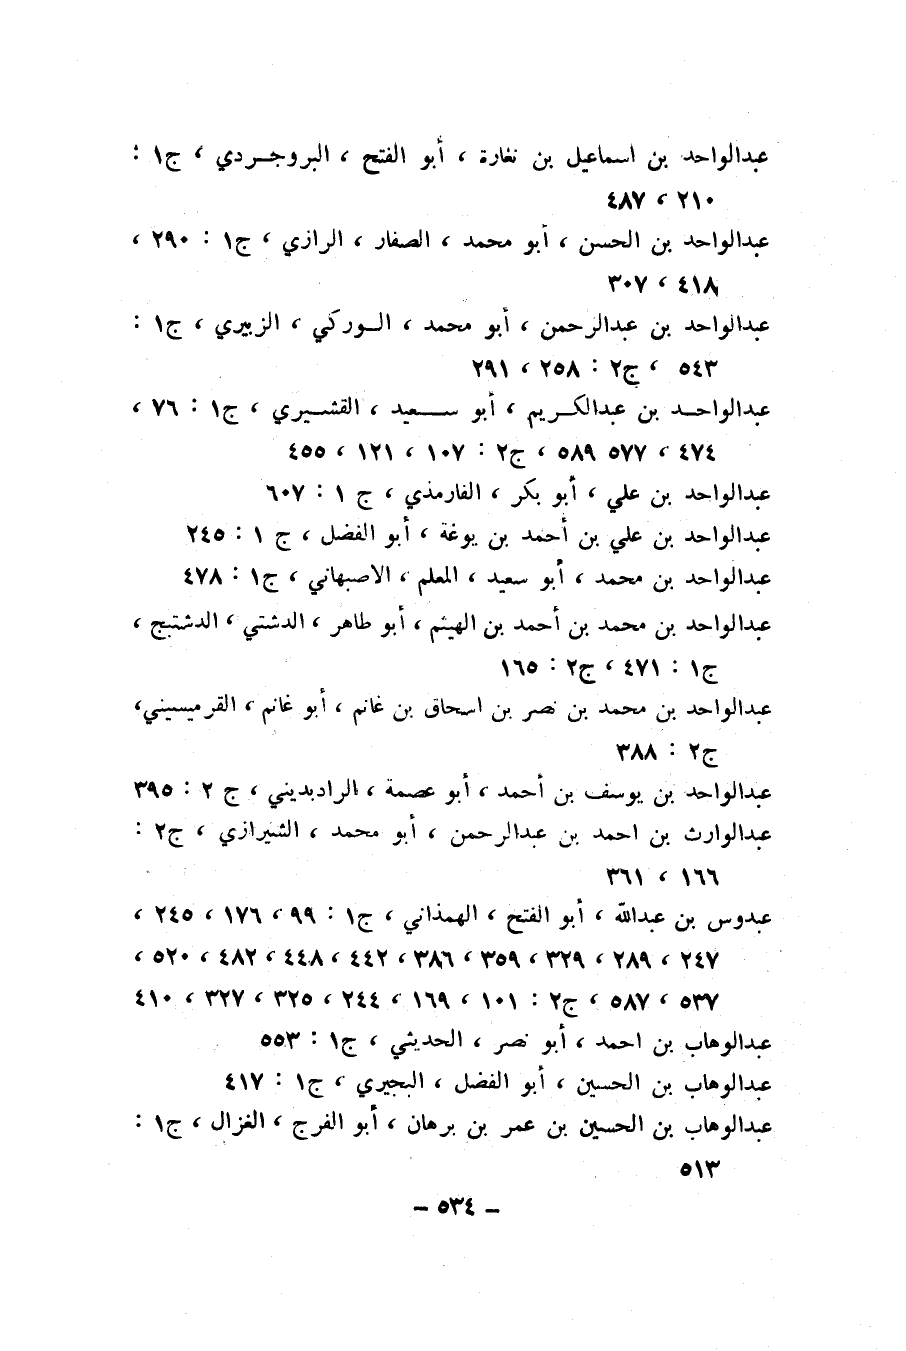 عبدالواحد بن اسماعيل بن نغارة ، أبو الفتح ، البروجردي ، ج١ :
٢١٠ ، ٤٨٧
عبدالواحد بن الحسن ، أبو محمد ، الصفار ، الرازي ، ج١ : ٢٩٠ ،
٤١٨ ، ٣٠٧
عبدالواحد بن عبدالرحمن ، أبو محمد ، الوركي ، الزبيري ، ج١ :
٥٤٣ ، ج٢ : ٢٥٨ ، ٢٩١
عبدالواحد بن عبدالكريم ، أبو سعيد ، القشيري ، ج١ : ٧٦ ،
٤٧٤ ، ٥٧٧ ٥٨٩ ، ج٢ : ١٠٧ ، ١٢١ ، ٤٥٥
عبدالواحد بن علي ، أبو بكر ، الفارمذي ، ج ١ : ٦٠٧
عبدالواحد بن علي بن أحمد بن يوغة ، أبو الفضل ، ج ١ : ٢٤٥
عبدالواحد بن محمد ، أبو سعيد ، المعلم ، الاصبهاني ، ج١ : ٤٧٨
عبدالواحد بن محمد بن أحمد بن الهيثم ، أبو طاهر ، الدشتي ، الدشتبج ،
ج١ : ٤٧١ ، ج٢ : ١٦٥
عبدالواحد بن محمد بن نصر بن اسحاق بن غانم ، أبو غانم ، القرميسيني،
ج٢ : ٣٨٨
عبدالواحد بن يوسف بن أحمد ، أبو عصمة ، الراديديني ، ج ٢ : ٣٩٥
عبدالوارث بن احمد بن عبدالرحمن ، أبو محمد ، الشيرازي ، ج٢ :
١٦٦ ، ٣٦١
عبدوس بن عبدالله ، أبو الفتح ، الهمذاني ، ج١ : ٩٩ ، ١٧٦ ، ٢٤٥ ،
٢٤٧ ، ٢٨٩ ، ٣٢٩ ، ٣٥٩ ، ٣٨٦ ، ٤٤٢ ، ٤٤٨ ، ٤٨٢ ، ٥٢٠ ،
٥٣٧ ، ٥٨٧ ، ج٢ : ١٠١ ، ١٦٩ ، ٢٤٤ ، ٣٢٥ ، ٣٢٧ ، ٤١٠
عبدالوهاب بن احمد ، أبو نصر ، الحديثي ، ج١ : ٥٥٣
عبدالوهاب بن الحسين ، أبو الفضل ، البجيري ، ج١ : ٤١٧
عبدالوهاب بن الحسين بن عمر بن برهان ، أبو الفرج ، الغزال ، ج١ :
٥١٣
– ٥٣٤ –